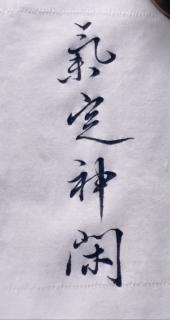 氣定神閑